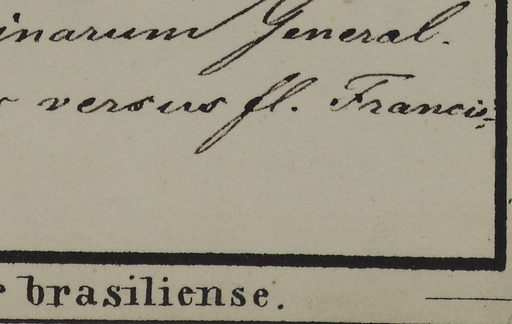 inarum General.
versus fl. Francis-
r brasiliense.